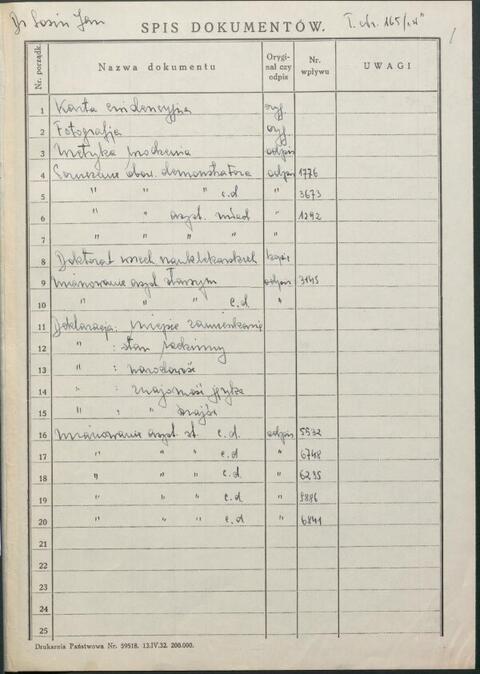 Dr Sosin Jan
SPIS DOKUMENTÓW.
T. cbr. 165/
1
Nr. porządk.
Nazwa dokumentu
Orygi-
nał czy
odpis
Nr.
wpływu
UWAGI
1 Karta ewidencyjna oryg.
2 Fotografja oryg.
3 Metryka urodzenia odpis
4 obow. demonstratora odpis 1776
5 " " " c.d " 3673
6 " " asyst. młod " 1242
7 " " " " "
8 Doktorat wszech nauk lekarskich kopia
9 Mianowanie asyst starszym odpis 3145
10 " " " c.d "
11 Deklaracja: miejsce zamieszkania
12 " : stan rodzinny
13 " : narodowość
14 " : znajomość języka
15 " : "
16 Mianowanie asyst. st. c.d. odpis 5532
17 " " " c.d " 6748
18 " " " c.d " 6295
19 " " " c.d " 9886
20 " " " c.d " 6841
21
22
23
24
25
Drukarnia Państwowa Nr. 59518. 13.IV.32. 200.000.